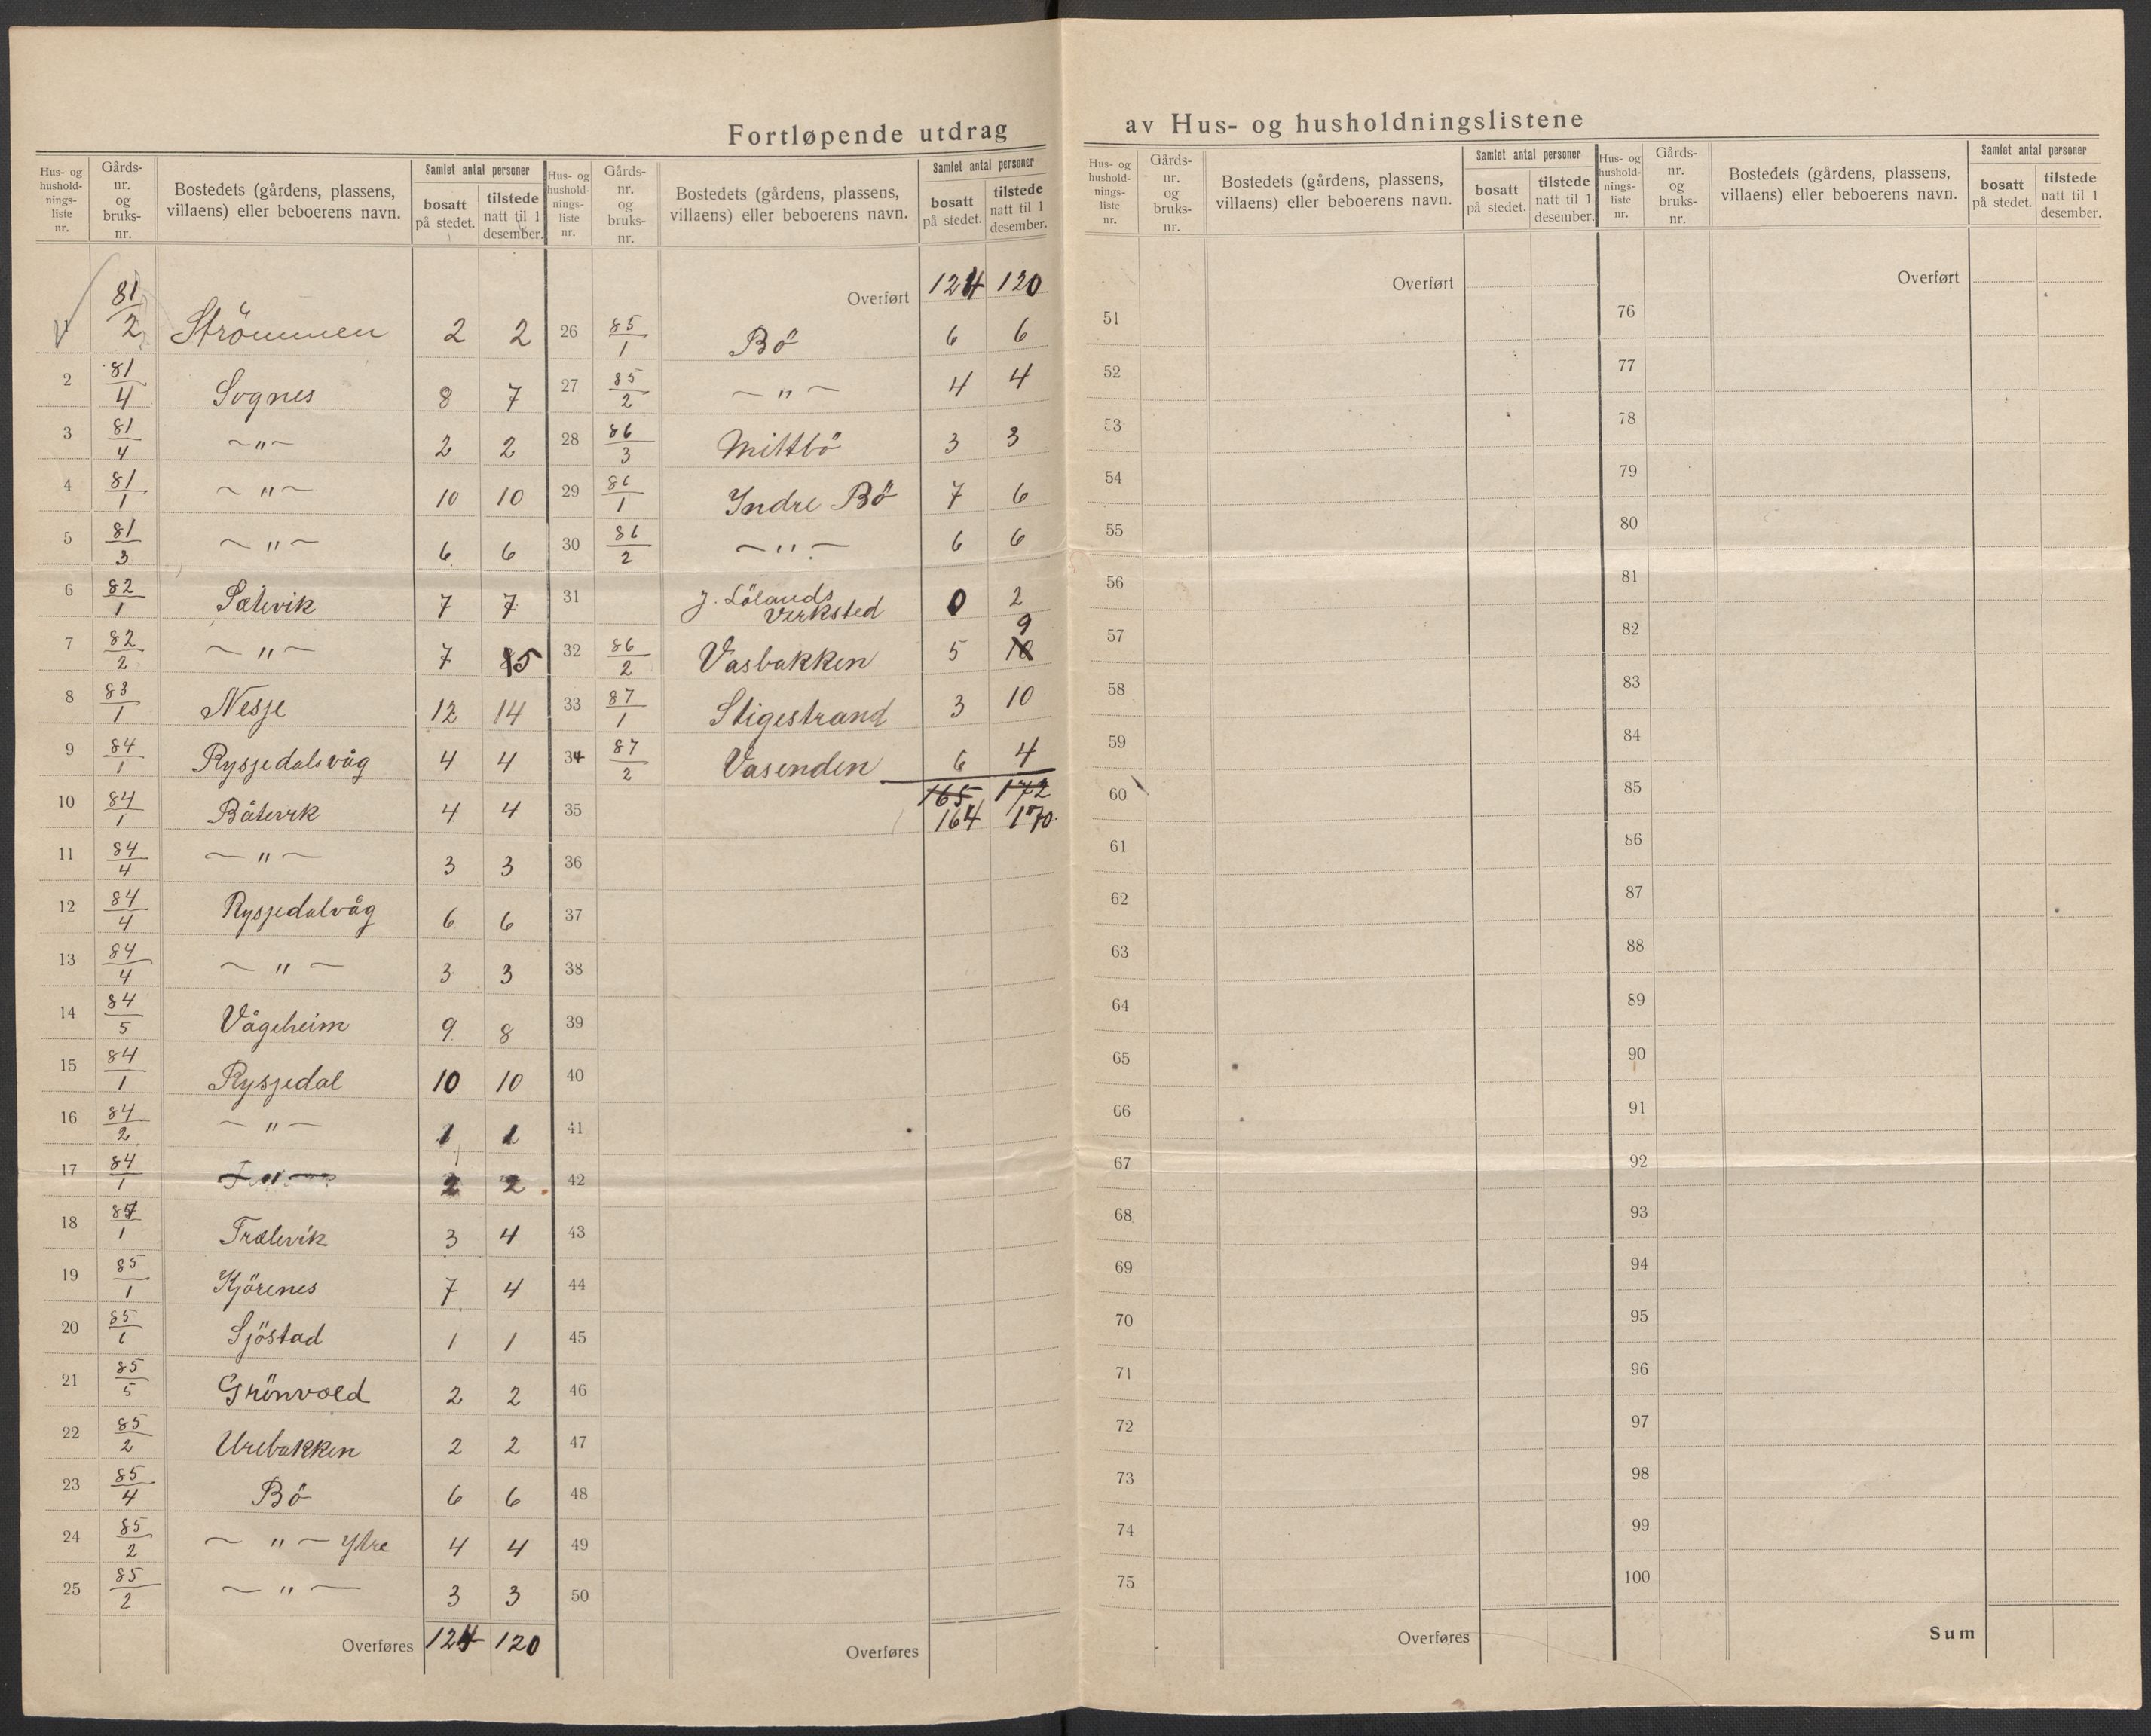 Fortløpende utdrag av Hus- og husholdningslistene
Hus- og hushold- nings- liste nr. | Gårds- nr. og bruks- nr. | Bostedets (gårdens, plassens, villaens) eller beboerens navn. | Samlet antal personer | bosatt på stedet. | tilstede natt til 1 desember.
81/2 Strömmen 2 2
2 81/4 Sognes 8 7
3 81/4 ~"~ 2 2
4 81/1 ~"~ 10 10
5 81/3 ~"~ 6 6
6 82/1 Sætevik 7 7
7 82/2 ~"~ 7 5
8 83/1 Nesje 12 14
9 84/1 Rysjedalsvåg 4 4
10 84/1 Båtevik 4 4
11 84/4 ~"~ 3 3
12 84/4 Rysjedalvåg 6 6
13 84/4 ~"~ 3 3
14 84/5 Vågeheim 9 8
15 84/1 Rysjedal 10 10
16 84/2 ~"~ 1 1
17 84/1 ~"~ 2 2
18 84/1 Trælevik 3 4
19 85/1 Kjörenes 7 4
20 85/6 Sjöstad 1 1
21 85/5 Grönvold 2 2
22 85/2 Urebakken 2 2
23 85/4 Bö 6 6
24 85/2 ~"~ Ytre 4 4
25 85/2 ~"~ 3 3
Overføres 124 120
Hus- og hushold- nings- liste nr. | Gårds- nr. og bruks- nr. | Bostedets (gårdens, plassens, villaens) eller beboerens navn. | Samlet antal personer | bosatt på stedet. | tilstede natt til 1 desember.
Overført 124 120
26 85/1 Bö 6 6
27 85/2 ~"~ 4 4
28 86/3 Mittbö 3 3
29 86/1 Indre Bö 7 6
30 86/2 ~"~ 6 6
31 J. Lölands Verksted 0 2
32 86/2 Vasbakken 5 10 9
33 87/1 Stigestrand 3 10
34 87/2 Vasenden 6 4
165 172
35 164 170.
36
37
38
39
40
41
42
43
44
45
46
47
48
49
50
Overføres
Hus- og hushold- nings- liste nr. | Gårds- nr. og bruks- nr. | Bostedets (gårdens, plassens, villaens) eller beboerens navn. | Samlet antal personer | bosatt på stedet. | tilstede natt til 1 desember.
Overført
51
52
53
54
55
56
57
58
59
60
61
62
63
64
65
66
67
68
69
70
71
72
73
74
75
Overføres
Hus- og hushold- nings- liste nr. | Gårds- nr. og bruks- nr. | Bostedets (gårdens, plassens, villaens) eller beboerens navn. | Samlet antal personer | bosatt på stedet. | tilstede natt til 1 desember.
Overført
76
77
78
79
80
81
82
83
84
85
86
87
88
89
90
91
92
93
94
95
96
97
98
99
100
Sum